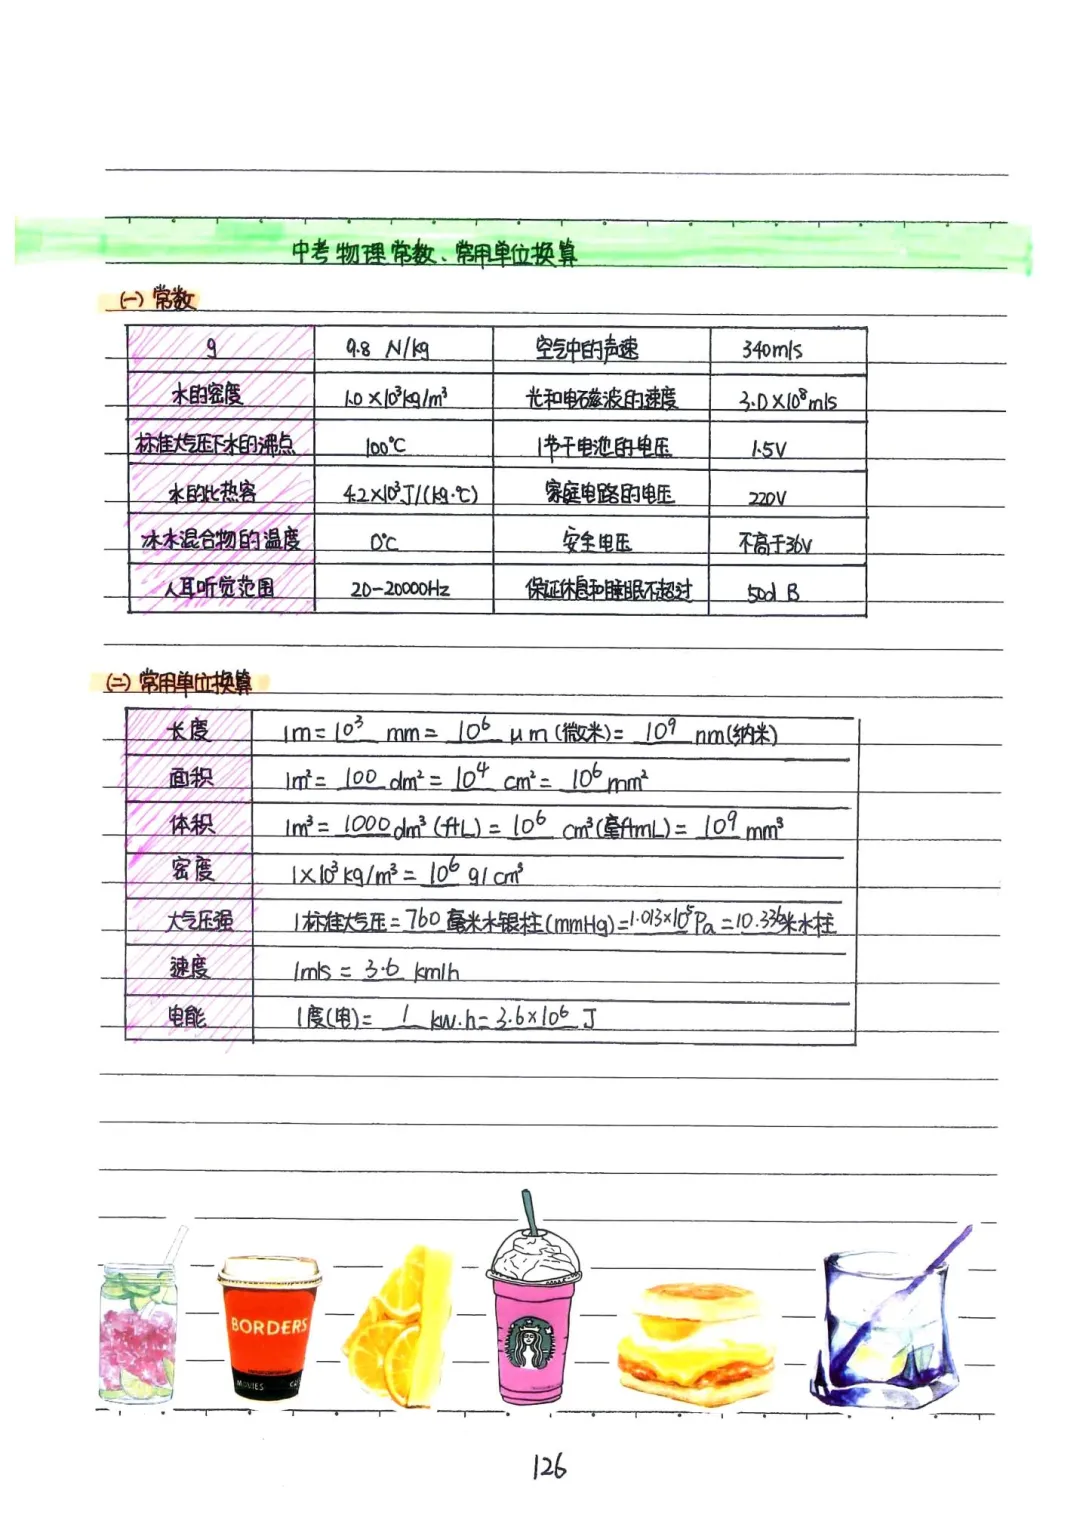 中考物理常数、常用单位换算
(一) 常数
g 9.8 N/kg 空气中的声速 340m/s
水的密度 1.0×10³kg/m³ 光和电磁波的速度 3.0×10⁸m/s
标准大气压下水的沸点 100℃ 1节干电池的电压 1.5V
水的比热容 4.2×10³J/(kg·℃) 家庭电路的电压 220V
冰水混合物的温度 0℃ 安全电压 不高于36V
人耳听觉范围 20-20000Hz 保证休息和睡眠不超过 50dB
(二) 常用单位换算
长度 1m=10³ mm=10⁶ μm(微米)=10⁹ nm(纳米)
面积 1m²=100 dm²=10⁴ cm²=10⁶mm²
体积 1m³=1000dm³(升L)=10⁶ cm³(毫升mL)=10⁹ mm³
密度 1×10³kg/m³=10⁶ g/cm³
大气压强 1标准大气压=760毫米水银柱(mmHg)=1.013×10⁵Pa=10.336米水柱
速度 1m/s=3.6 km/h
电能 1度(电)=1 kw.h=3.6×10⁶ J
BORDERS
MOVIES
126